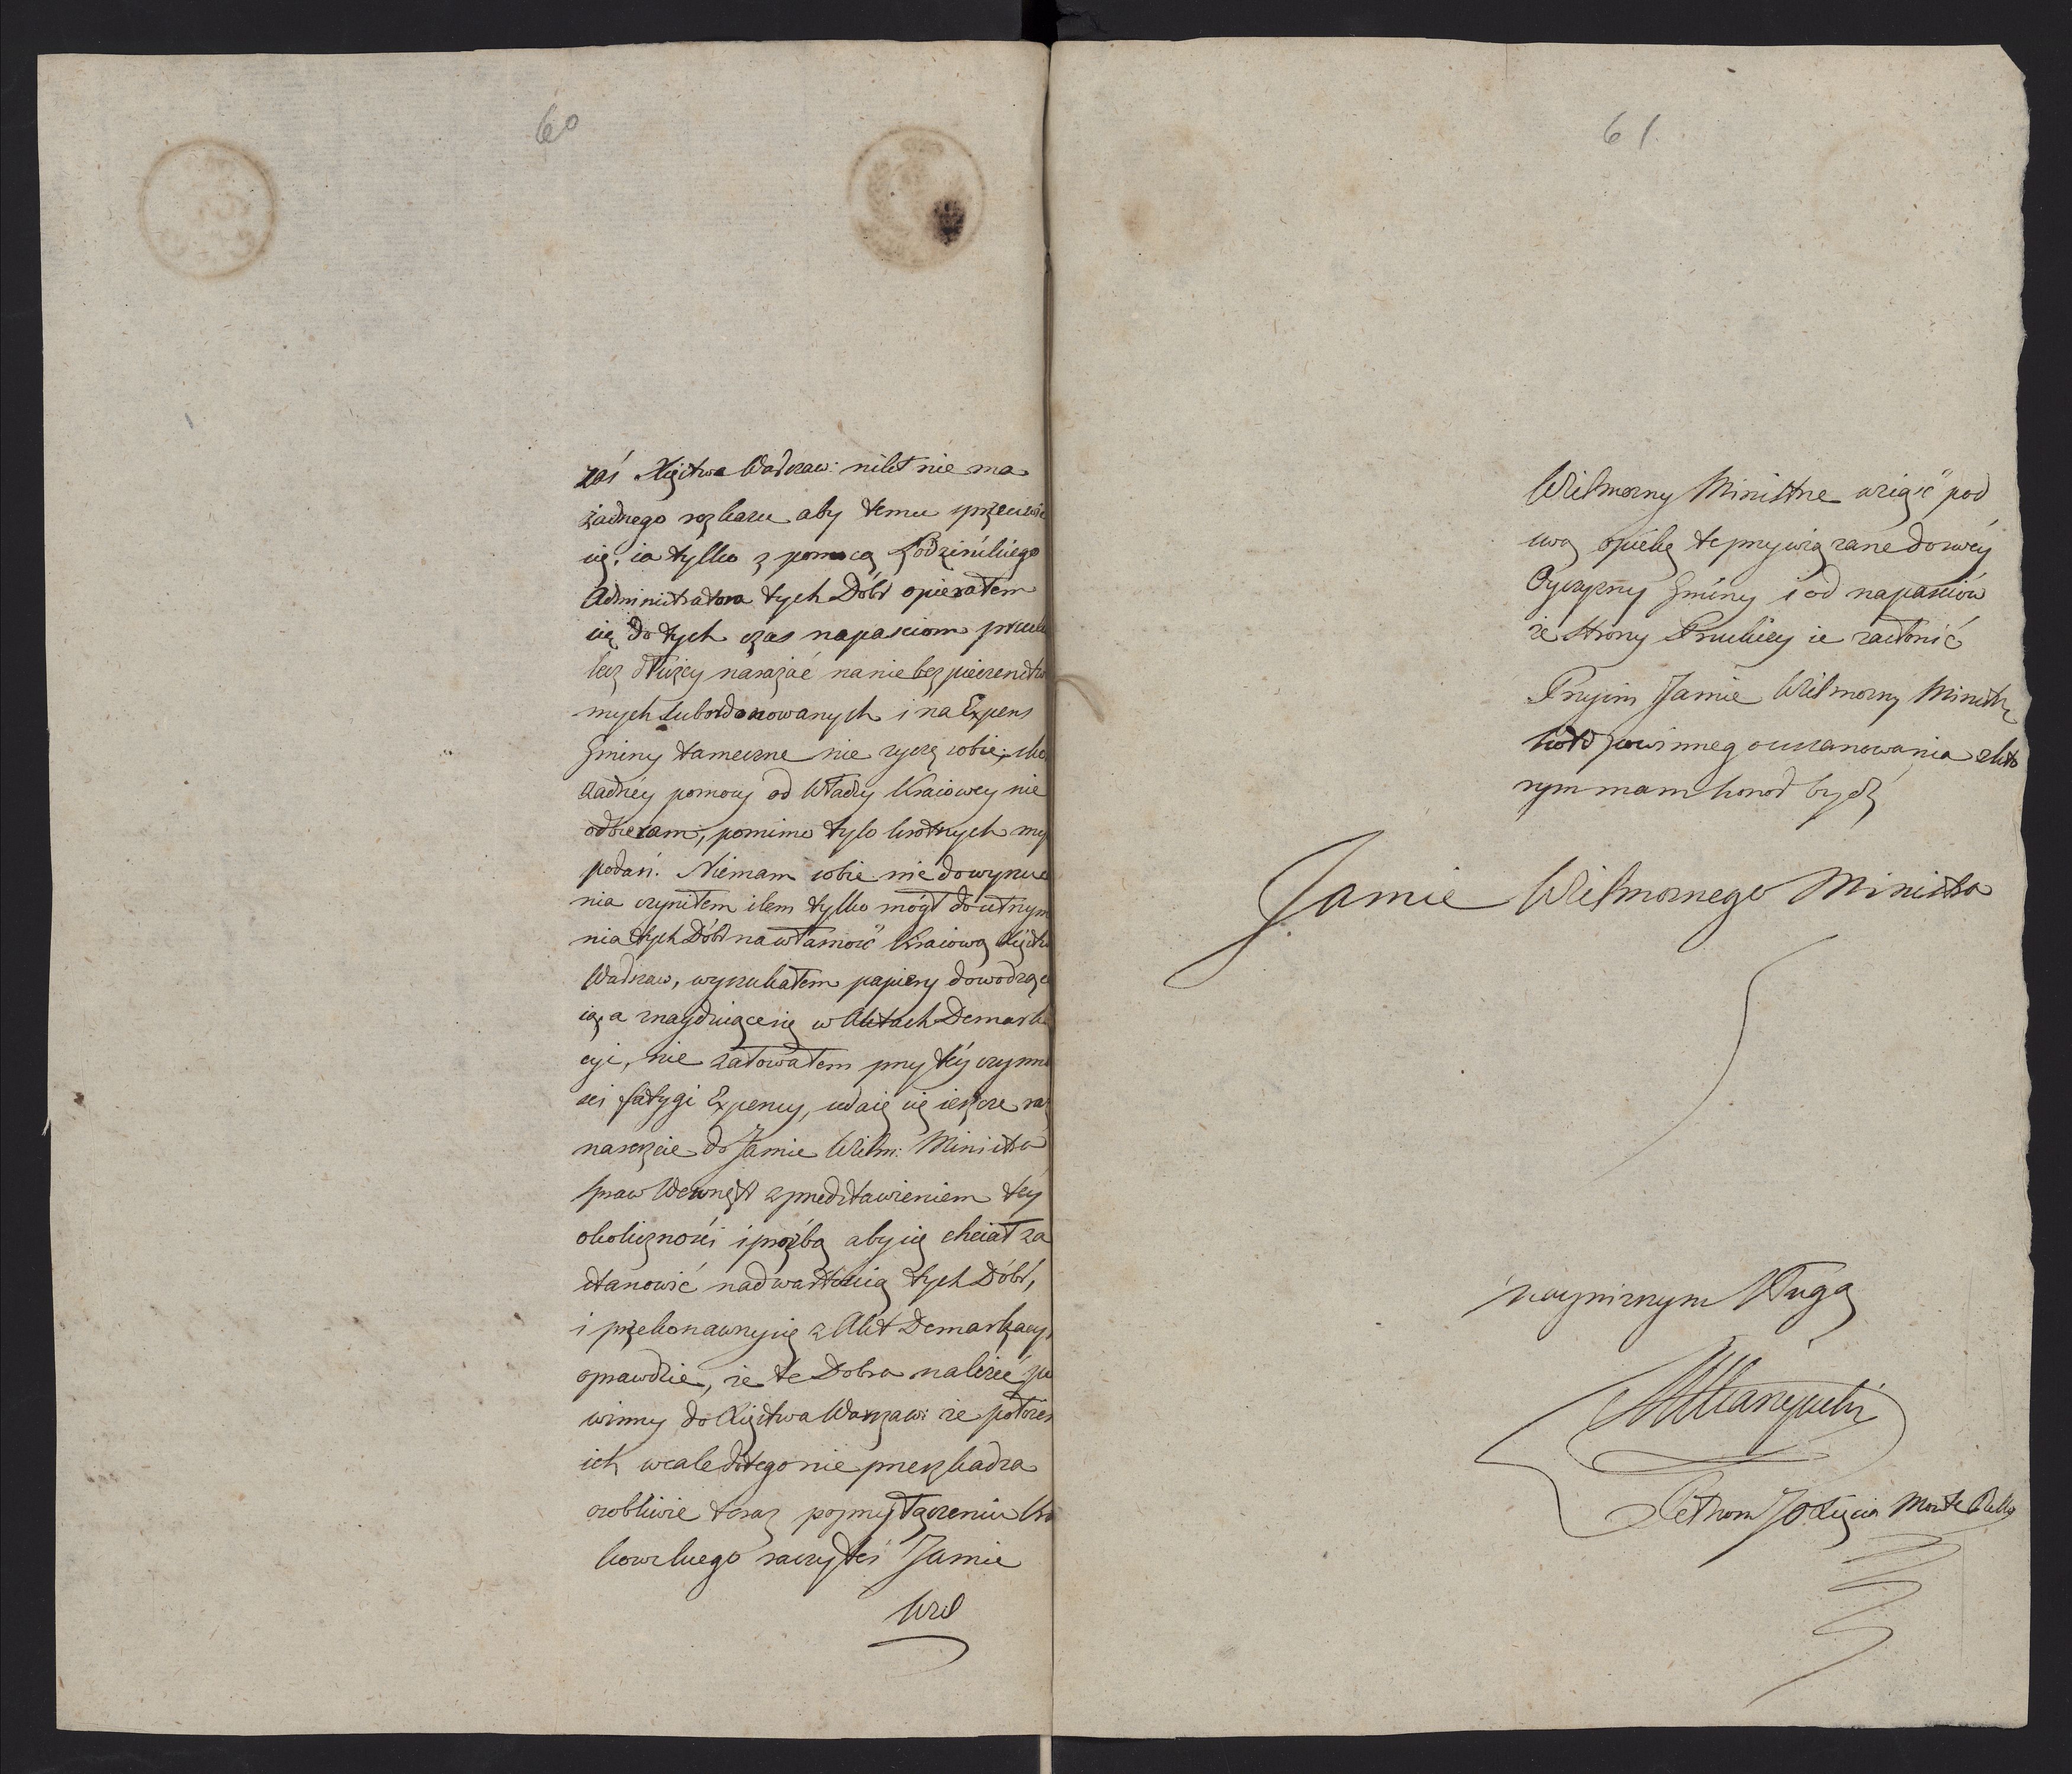 60
zaś Xięstwa Warszaw: nikt nie ma
żadnego rozkazu aby temu sprzeciwić
się; ia tylko z pomocą Łodzińskiego
Administratora tych Dóbr opierałem
się do tych czas napasciom
lecz dłużey narażać na niebezpieczeństw
mych subordonowanych i na Expens
Gminy tameczne nie życzę sobie,
żadnéy pomocy od Władzy Kraiowey nie
odbieram, pomimo tylo krotnych my
podań. Niemam sobie nic dowyrzuce
nia czyniłem ilem tylko mógł do utrzym
nia tych Dóbr na własność Kraiową Xięstw
Warszaw, wyszukałem papiery dowodzące
ią, a znayduiące się w Aktach Demarka
cyi, nie żałowałem przy téy czynno
sci fatygi Expensy, udaię się ieszcze raz
nareszcie do Jaśnie Wielm: Ministra
Spraw Wewnętr z przedstawieniem téy
okoliczności i proźbą aby się chciał za
stanowić nad wartością tych Dóbr,
i przekonawszy się z Akt Demarkacyi
oprawdzie, że te Dobra należeć po
winny do Xięstwa Warszaw: że położen
ich wcale do tego nie przeszkadza
osobliwie teraz po przyłączeniu Kra
kowskiego raczyłeś Jaśnie
Wiel
61
Wielmożny Ministrze wziąść pod
swą opiekę te przywiązane do swéy
Oyczyzny Gminy i od napaściów
ze strony Pruskiey ie zasłonić
Przyim Jaśnie Wielmożny Ministrze
hołd powinnego uszanowania z któ
rym mam honor bydź
Jaśnie Wielmożnego Ministra
nayniższym Sługą
Pełnom JO Xięcia Monte Bello